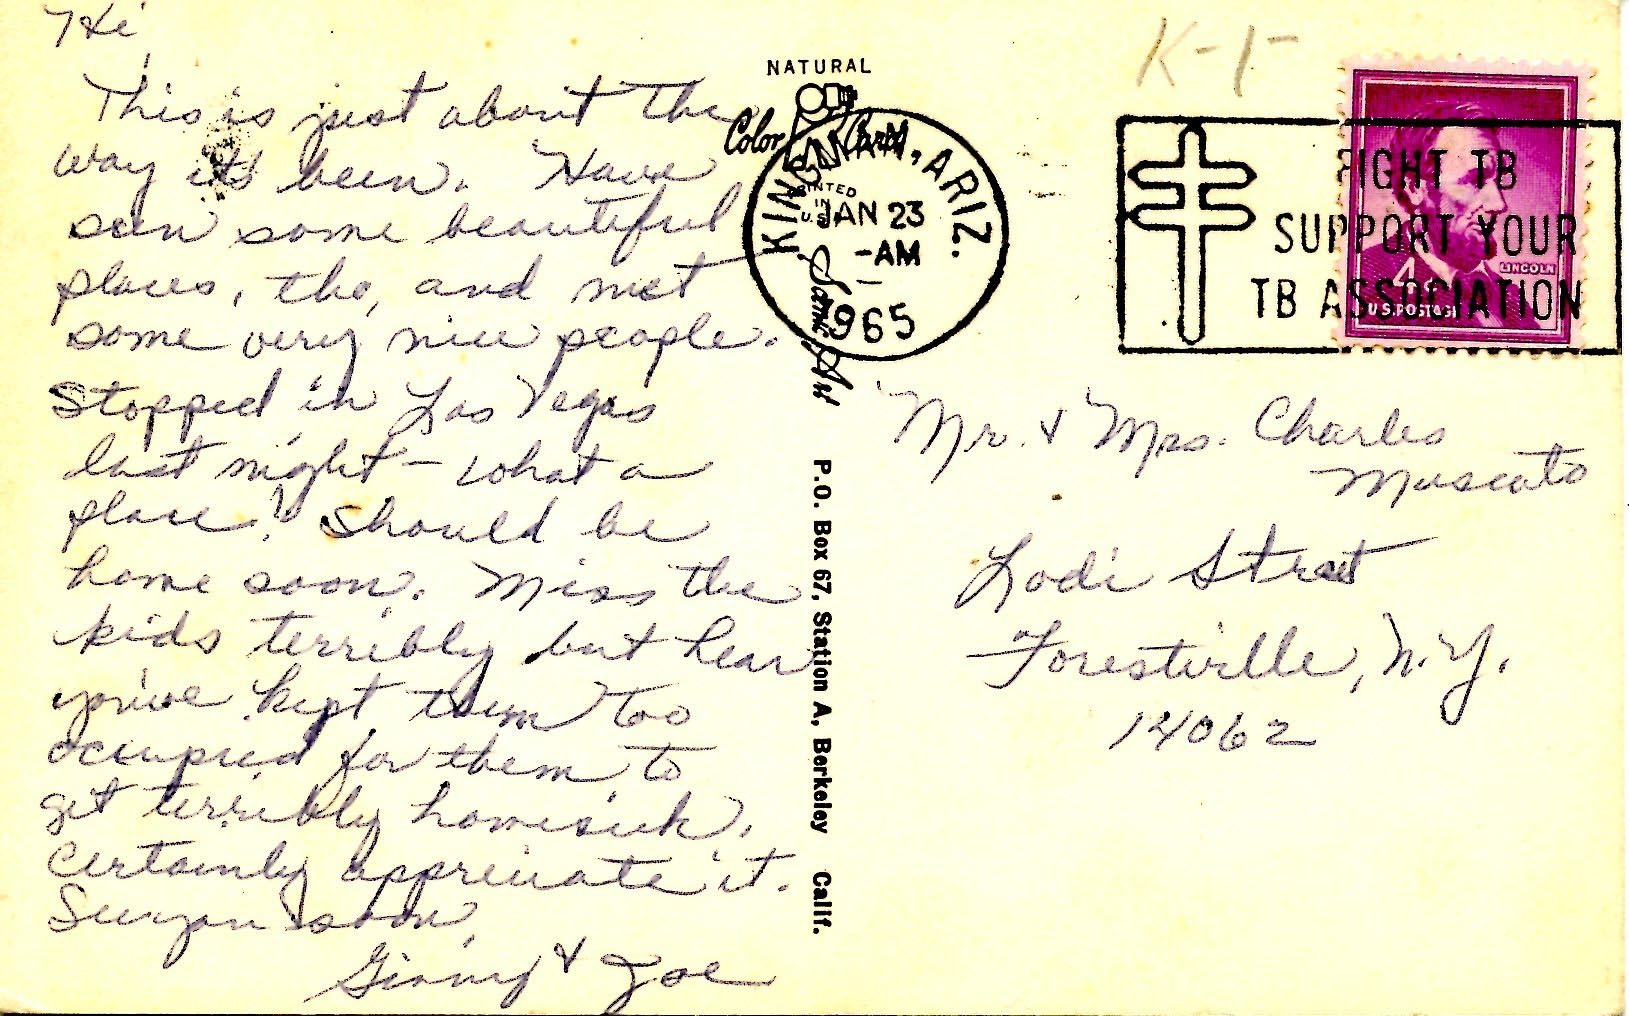 Hi,
This is just about the
way it's been. Have
seen some beautiful
places, tho, and met
some very nice people.
Stopped in Las Vegas
last night – what a
place! Should be
home soon. Miss the
kids terribly but hear
you've kept them too
occupied for them to
get terribly homesick.
Certainly appreciate it.
See you soon,
Ginny & Joe
NATURAL
Color Card
PRINTED
IN
U.S.A.
P.O. Box 67, Station A, Berkeley Calif.
KINGMAN, ARIZ.
JAN 23
-AM
1965
K-1-
FIGHT TB
SUPPORT YOUR
TB ASSOCIATION
LINCOLN
4¢
U.S. POSTAGE
Mr. & Mrs. Charles
Muscato
Lodi Street
Forestville, N.Y.
14062